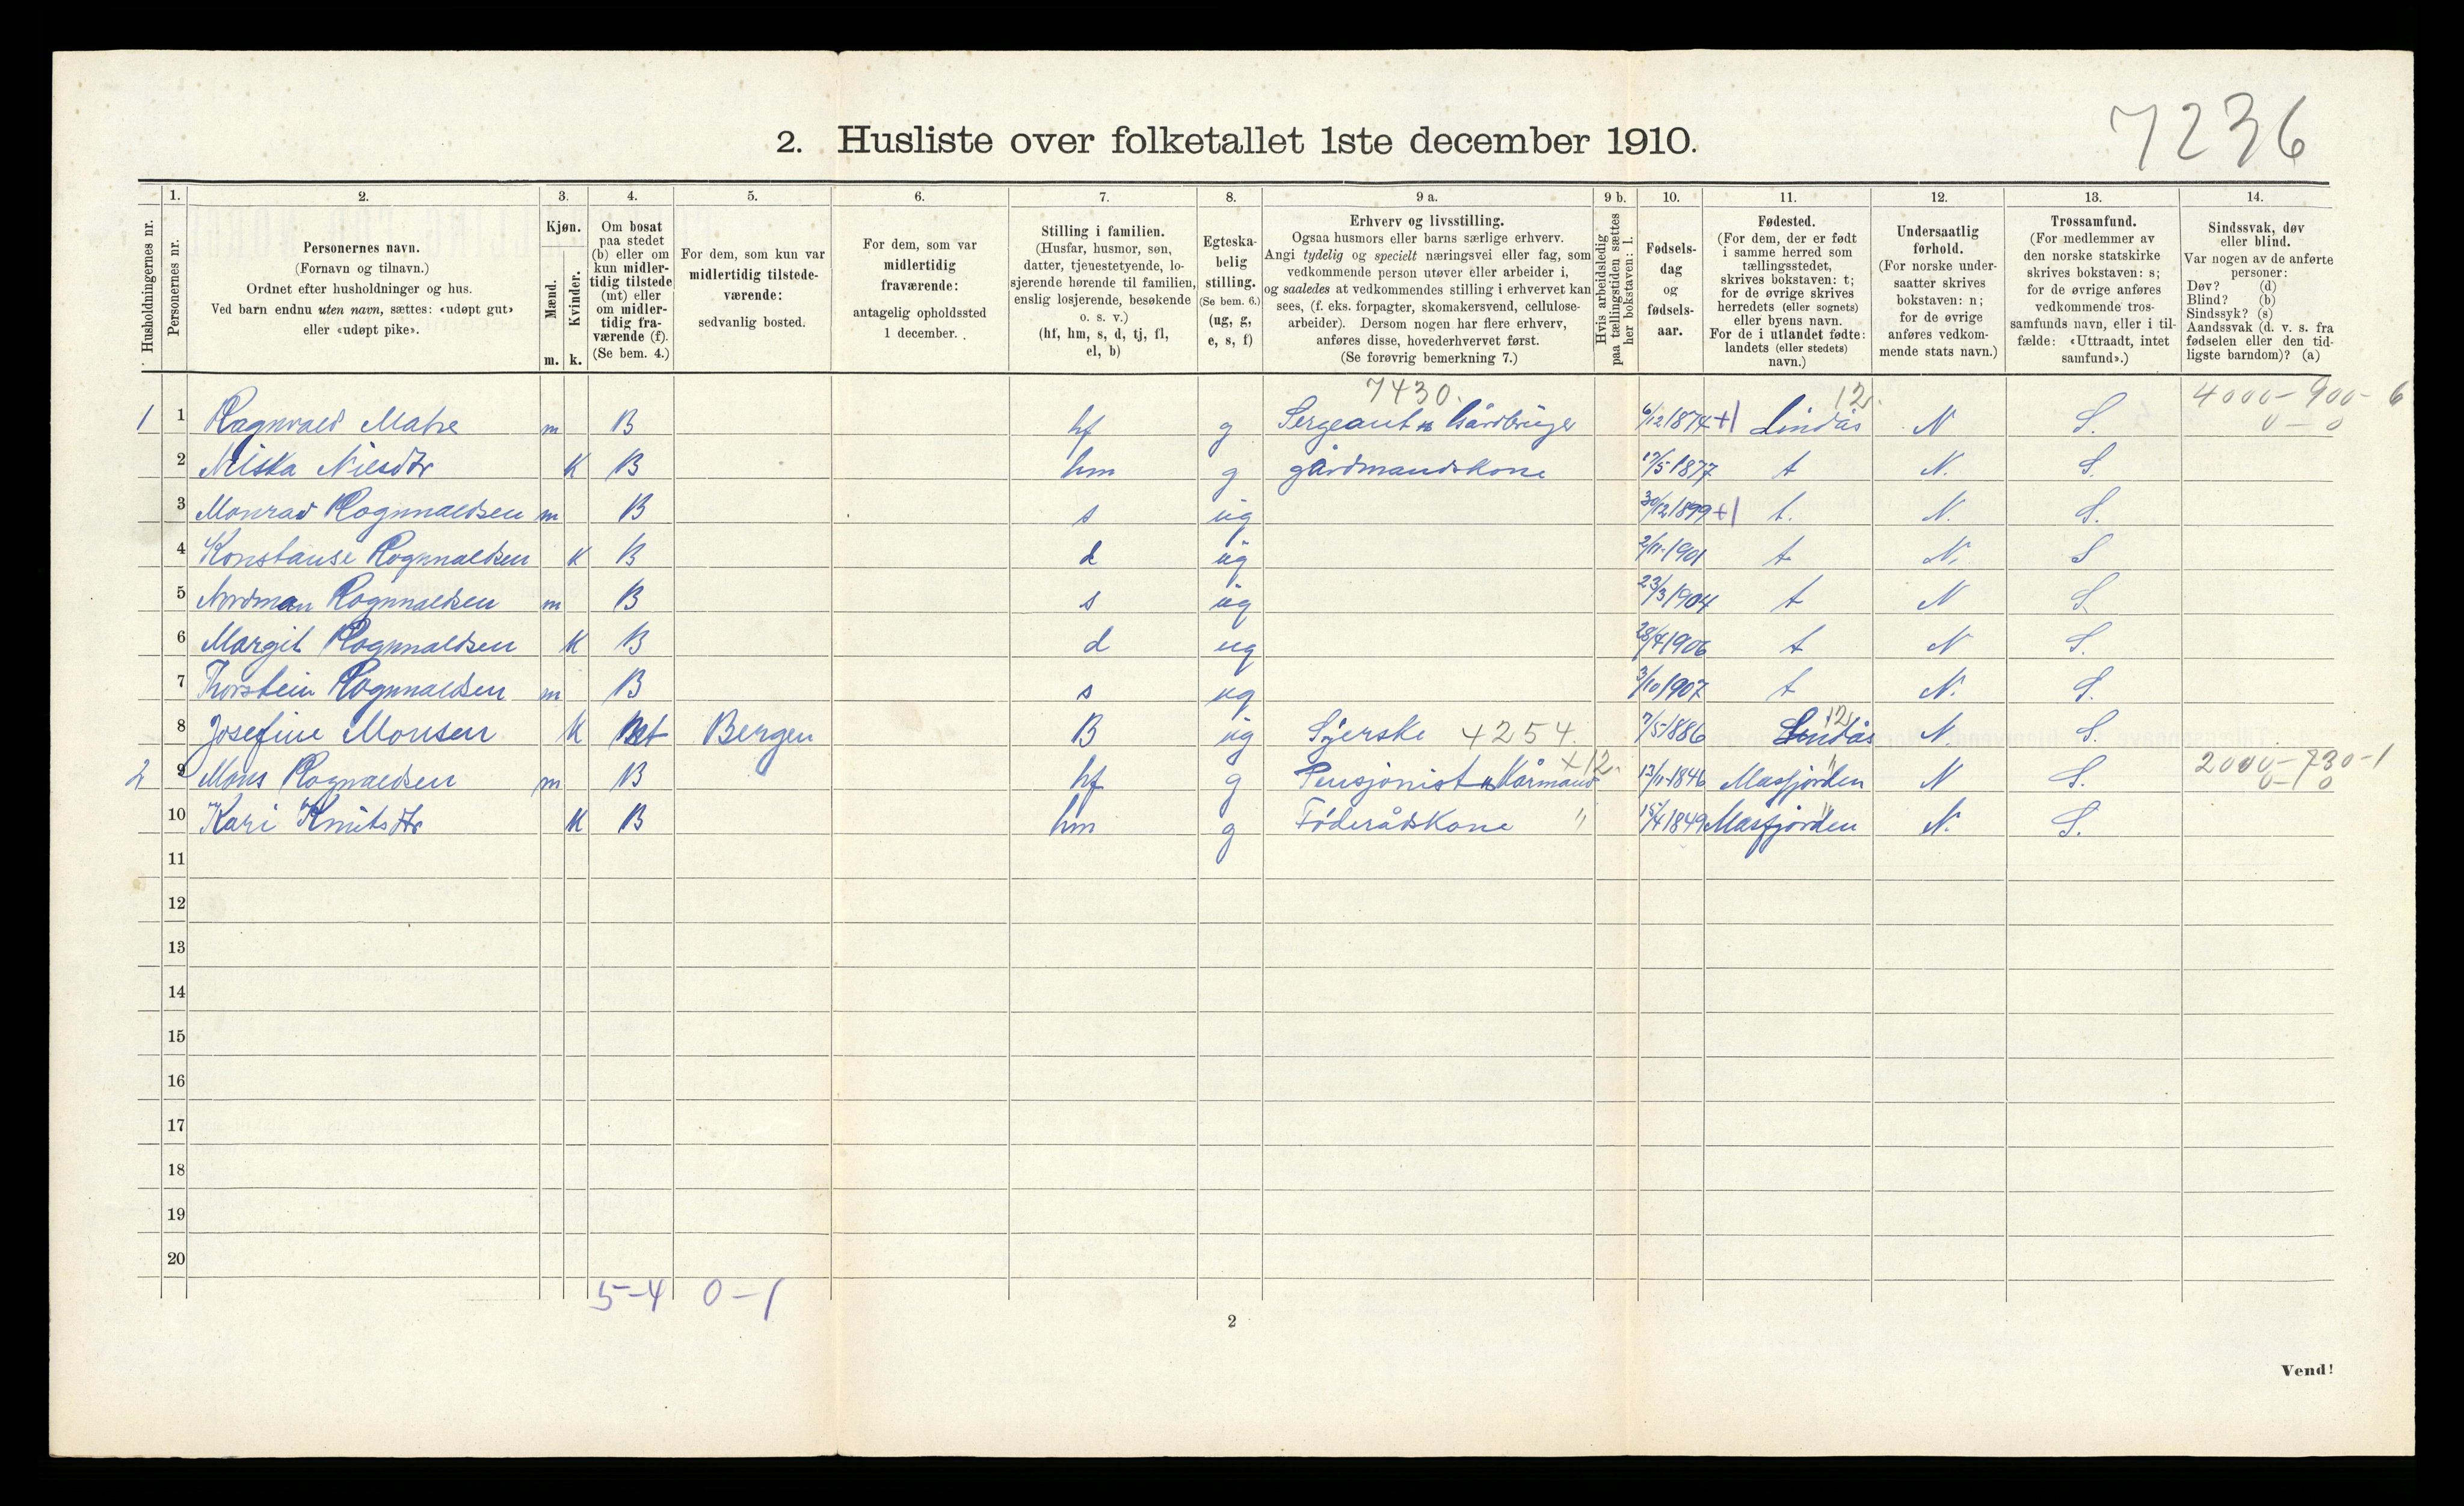 7236
2. Husliste over folketallet 1ste december 1910.
Husholdningernes nr.
1.
Personernes nr.
2.
Personernes navn.
(Fornavn og tilnavn.)
Ordnet efter husholdninger og hus.
Ved barn endnu uten navn, sættes: «udøpt gut»
eller «udøpt pike».
3.
Kjøn.
Mænd.
Kvinder.
m. k.
4.
Om bosat
paa stedet
(b) eller om
kun midler-
tidig tilstede
(mt) eller
om midler-
tidig fra-
værende (f).
(Se bem. 4.)
5.
For dem, som kun var
midlertidig tilstede-
værende:
sedvanlig bosted.
6.
For dem, som var
midlertidig
fraværende:
antagelig opholdssted
1 december.
7.
Stilling i familien.
(Husfar, husmor, søn,
datter, tjenestetyende, lo-
sjerende hørende til familien,
enslig losjerende, besøkende
o. s. v.)
(hf, hm, s, d, tj, fl,
el, b)
8.
Egteska-
belig
stilling.
(Se bem. 6.)
(ug, g,
e, s, f)
9 a.
Erhverv og livsstilling.
Ogsaa husmors eller barns særlige erhverv.
Angi tydelig og specielt næringsvei eller fag, som
vedkommende person utøver eller arbeider i,
og saaledes at vedkommendes stilling i erhvervet kan
sees, (f. eks. forpagter, skomakersvend, cellulose-
arbeider). Dersom nogen har flere erhverv,
anføres disse, hovederhvervet først.
(Se forøvrig bemerkning 7.)
9 b.
Hvis arbeidsledig
paa tællingstiden sættes
her bokstaven: l.
10.
Fødsels-
dag
og
fødsels-
aar.
11.
Fødested.
(For dem, der er født
i samme herred som
tællingsstedet,
skrives bokstaven: t;
for de øvrige skrives
herredets (eller sognets)
eller byens navn.
For de i utlandet fødte:
landets (eller stedets)
navn.)
12.
Undersaatlig
forhold.
(For norske under-
saatter skrives
bokstaven: n;
for de øvrige
anføres vedkom-
mende stats navn.)
13.
Trossamfund.
(For medlemmer av
den norske statskirke
skrives bokstaven: s;
for de øvrige anføres
vedkommende tros-
samfunds navn, eller i til-
fælde: «Uttraadt, intet
samfund».)
14.
Sindssvak, døv
eller blind.
Var nogen av de anførte
personer:
Døv? (d)
Blind? (b)
Sindssyk? (s)
Aandssvak (d. v. s. fra
fødselen eller den tid-
ligste barndom)? (a)
7430. 12. 4000-900-6
1 1 Ragnvald Matre m B hf g Sergeant & Gårdbruger 6/12 1874 +1 Lindås N S. 0-0
2 Milska Nilsdtr K B hm g gårdmandskone 17/5 1877 t N. S.
3 Monrad Rognvaldsen m B s ug 30/12 1899 +1 t. N. S.
4 Konstanse Rognvaldsen K B d ug 2/11-1901 t N. S
5 Nordman Rognvaldsen m B s ug 23/3 1904 t N S
6 Margit Rognvaldsen K B d ug 28/4 1906 t N S.
7 Thorstein Rognvaldsen m B s ug 3/10 1907 t N. S.
8 Josefine Monsen K Mt Bergen B ug Syerske 4254. 7/5-1886 Lindås 12 N. S.
2 9 Mons Rognvaldsen m B hf g Pensjonist & Kårmand x12. 13/11-1846 Masfjorden " N S. 2000-730-1
0-0
10 Kari Knutsdtr K B hm g Føderådskone " 15/4 1849 Masfjorden " N. S.
11
12
13
14
15
16
17
18
19
20
5-4 0-1
2
Vend!